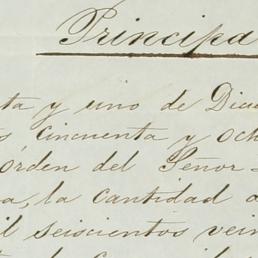 Principa
ta y uno de Dici
s cincuenta y och
órden del Señor
a, la cantidad d
il seiscientos vein